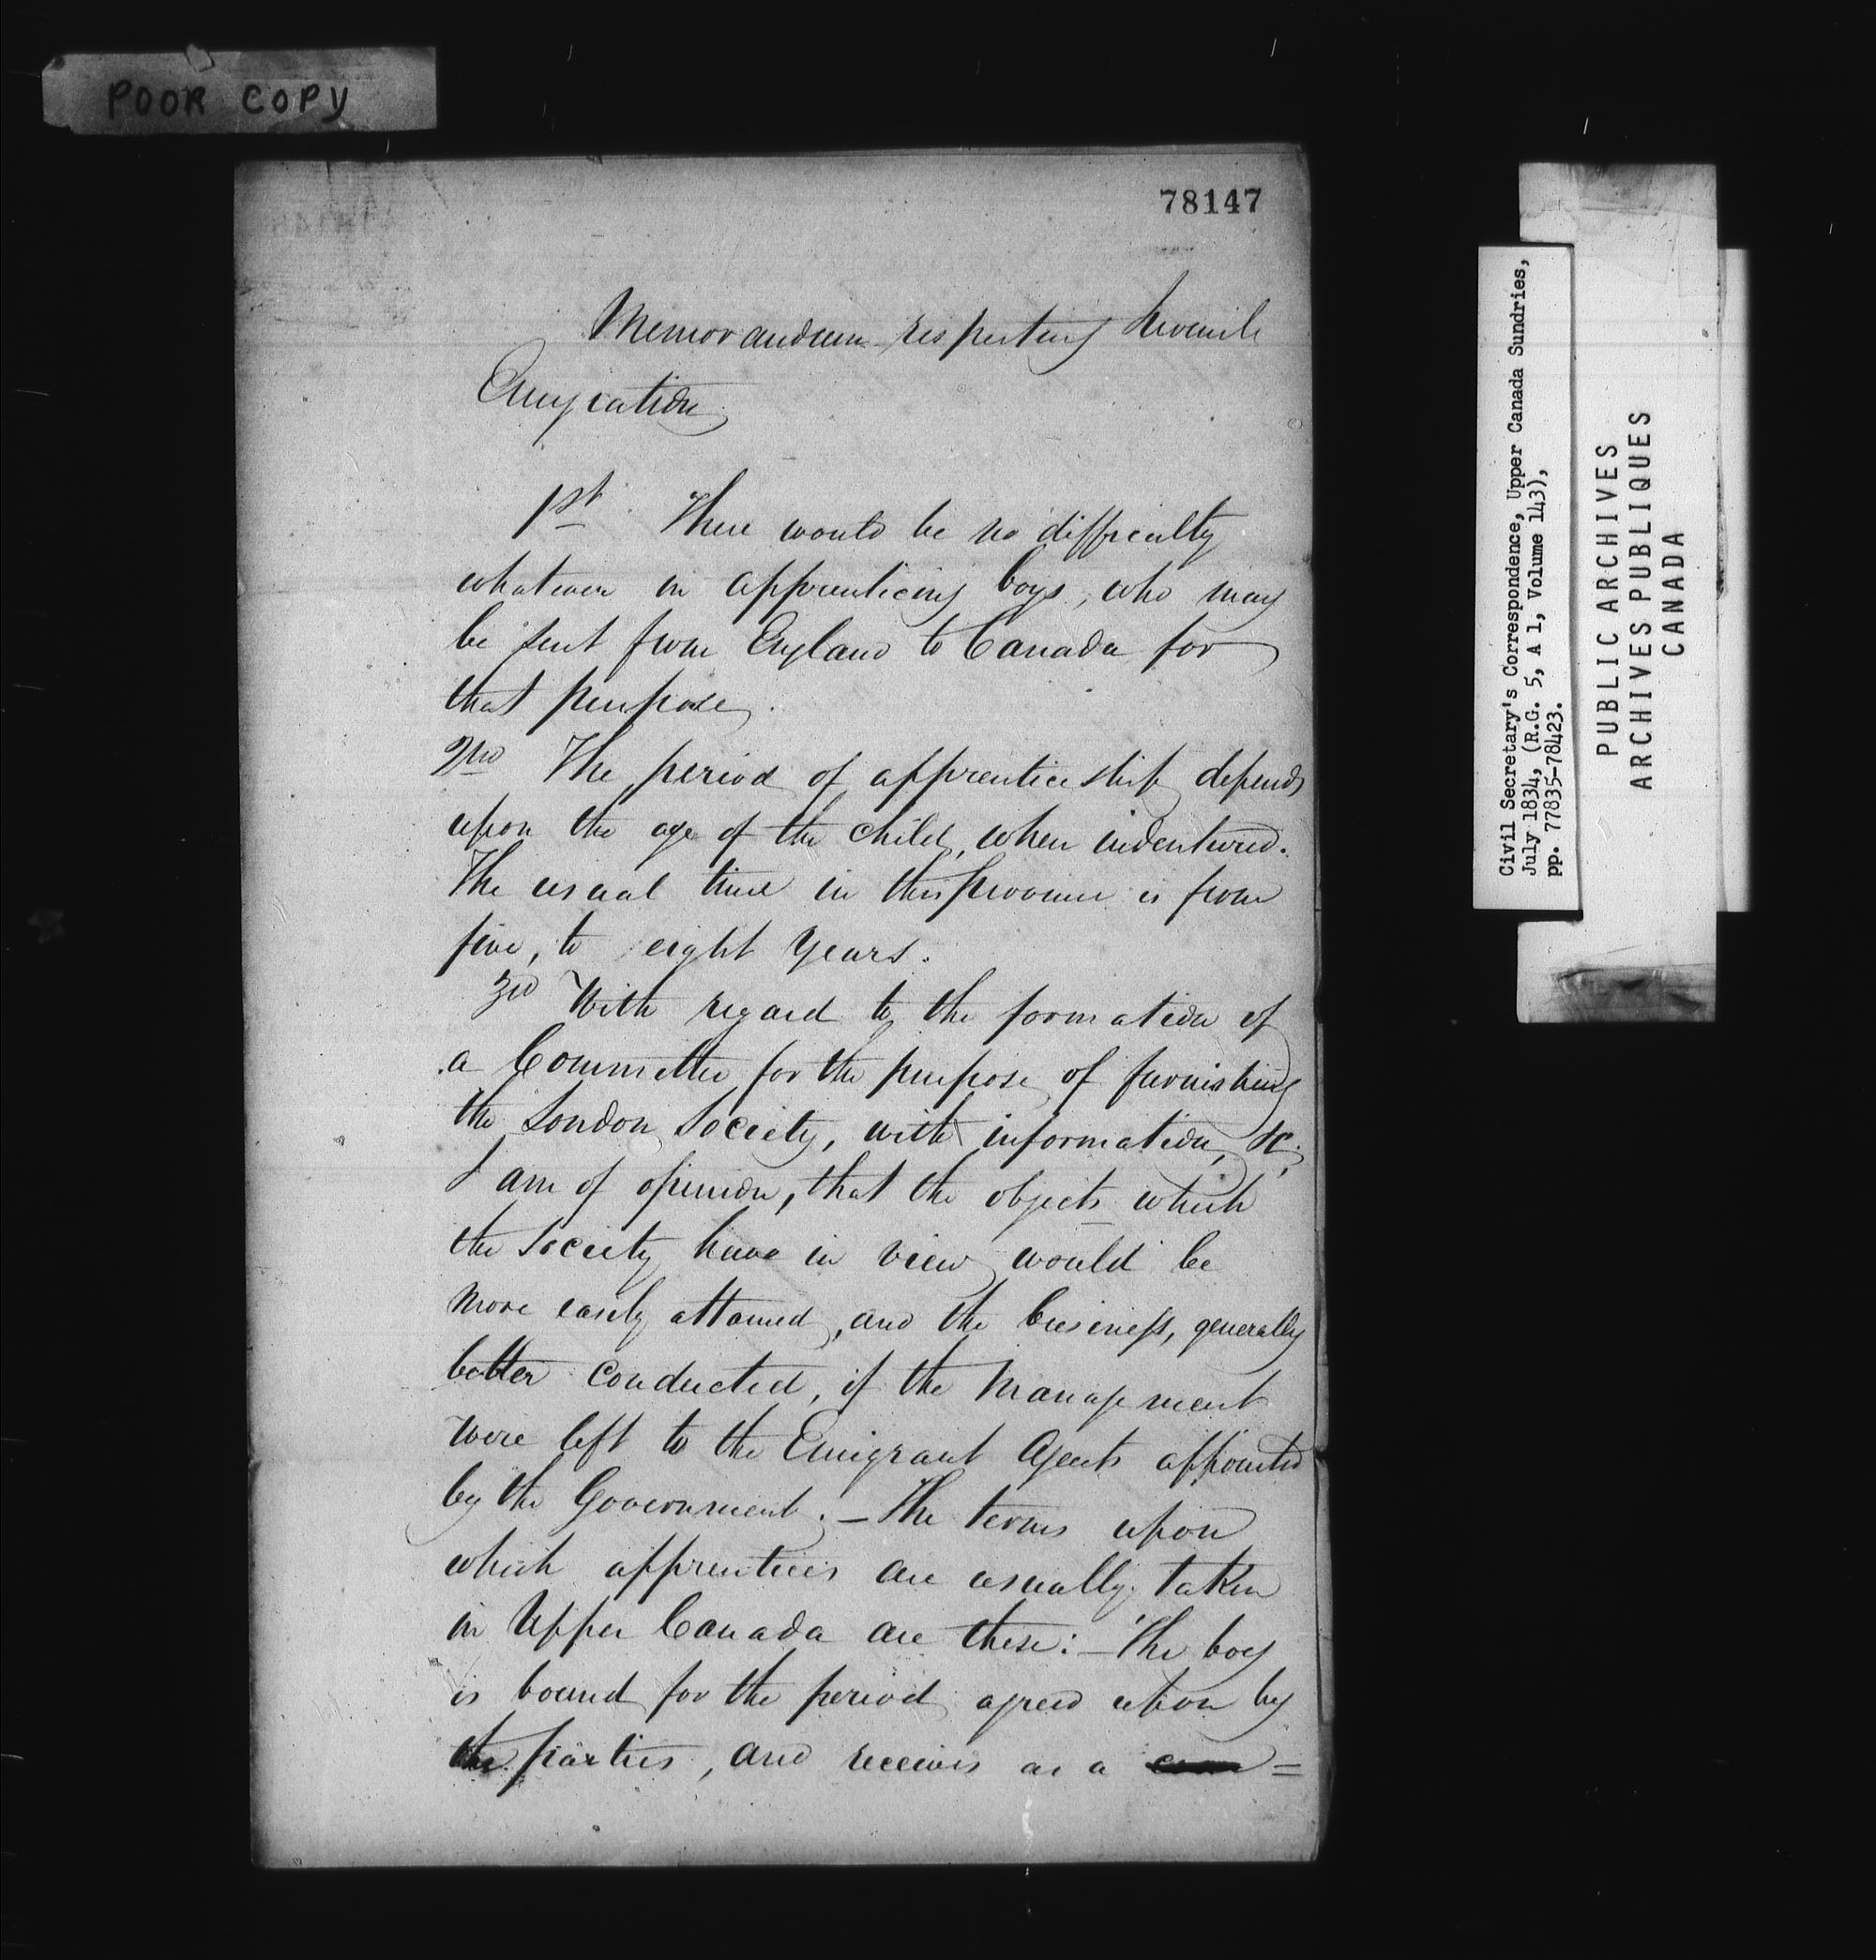 POOR COPY
78147
Memorandum respecting Juvenile
Emigration
1st There would be no difficulty
whatever in apprenticing boys, who may
be sent from England to Canada for
that purpose.
2nd The period of apprenticeship depends
upon the age of the child, when indentured.
The usual time in this province is from
five, to eight years.
3rd With regard to the formation of
a Committee for the purpose of furnishing
the London Society, with information, &c,
I am of opinion, that the objects which
the Society have in view would be
more easily attained, and the business, generally
better conducted, if the Management
were left to the Emigrant Agents appointed
by the Government. — The terms upon
which apprentices are usually taken
in Upper Canada are these: — The boy
is bound for the period agreed upon by
the parties, and receives as a =
Civil Secretary's Correspondence, Upper Canada Sundries,
July 1834, (R.G. 5, A 1, Volume 143),
pp. 77835-78423.
PUBLIC ARCHIVES
ARCHIVES PUBLIQUES
CANADA